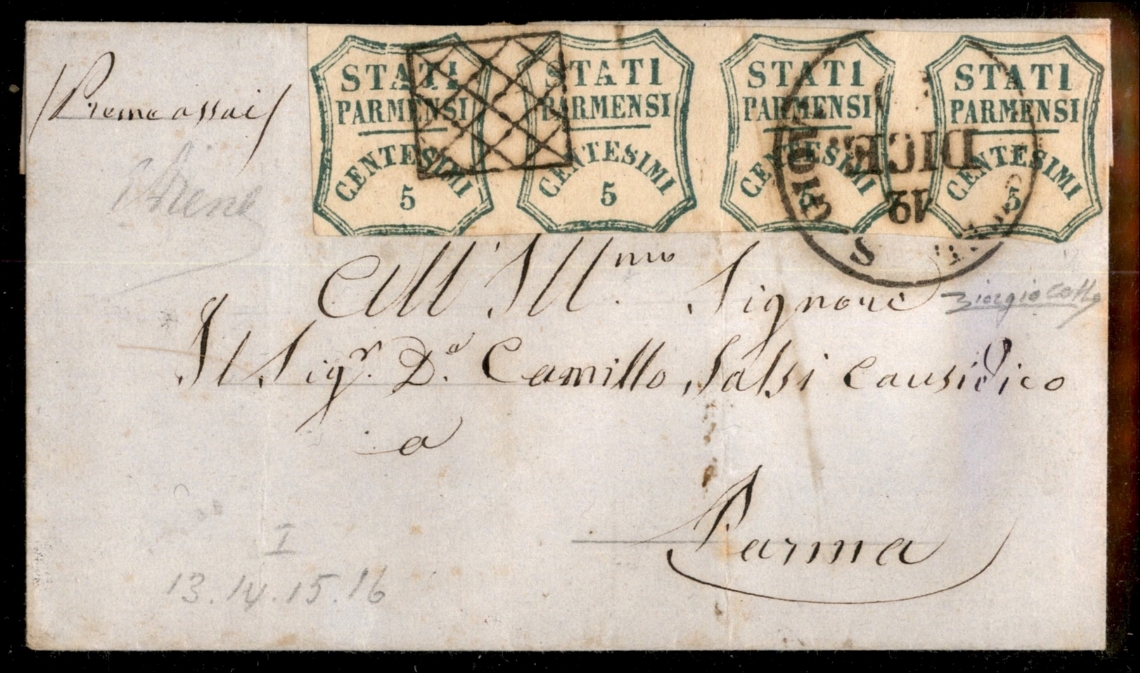 STATI PARMENSI CENTESIMI 5
STATI PARMENSI CENTESIMI 5
STATI PARMENSI CENTESIMI 5
STATI PARMENSI CENTESIMI 5
19 DICE
Preme assai
All' Ill.mo Signore
Il Sigr. Dr. Camillo Salsi Causidico
a
Parma
I
13.14.15.16